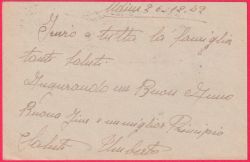 Invio a tutta la famiglia
tanti saluti
Augurando un Buon Anno
Buona Fine e meniglior Principio
Saluti Umberto